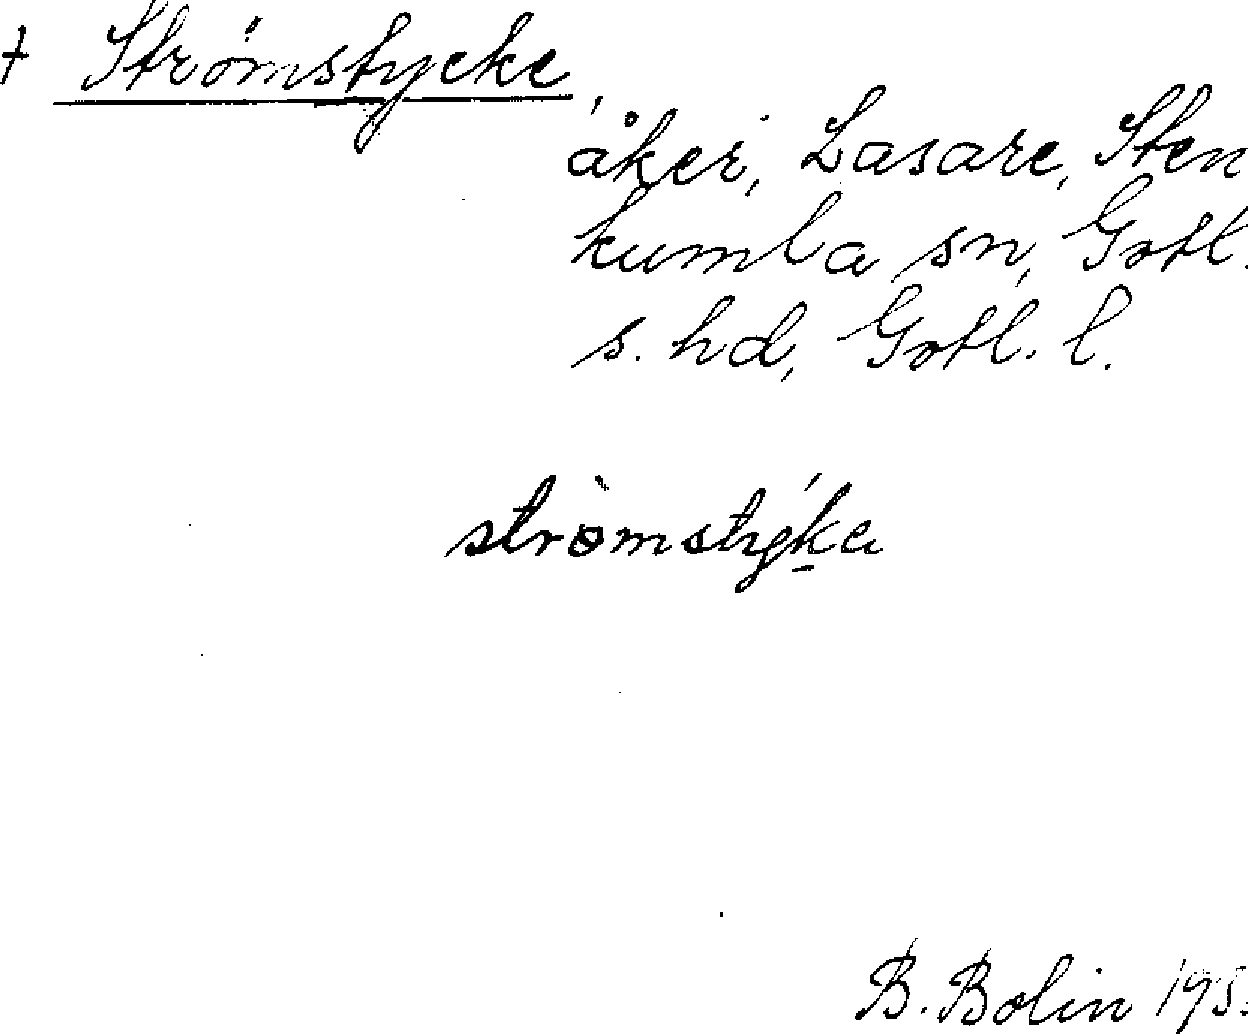 + Strömstycke,
åker, Lasare, Sten
kumla sn, Gotl.
s. hd, Gotl. l.
strömstyka
B. Bolin